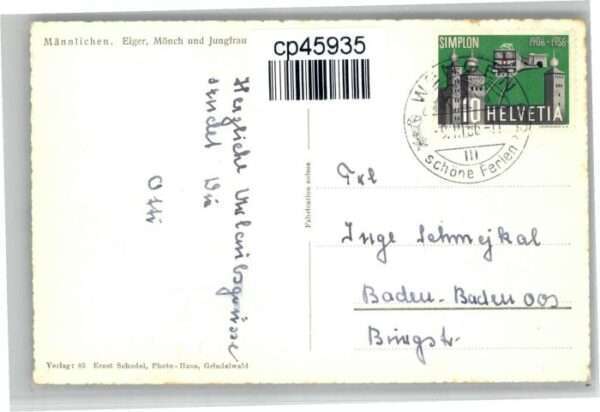 Männlichen. Eiger, Mönch und Jungfrau
cp45935
SIMPLON 1906-1956
10 HELVETIA
WENGEN
III
schöne Ferien
Herzliche Urlaubsgrüsse
sendet Dir
Otti
Fabrication suisse
Frl
Inge Schmejkal
Baden-Baden oos
Verlag: 85 Ernst Schudel, Photo-Haus, Grindelwald